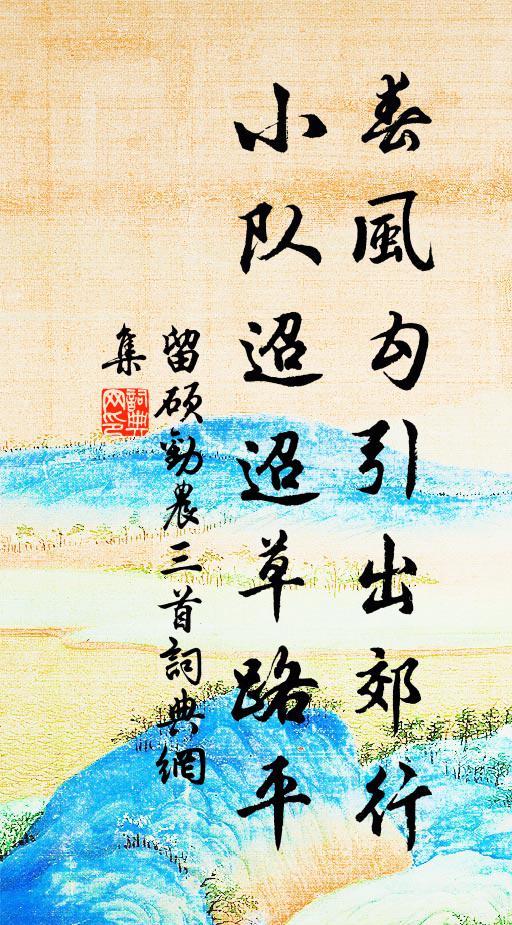 春風勾引出郊行
小队迢迢草路平
留碩勸農三首詞典網
集
詞典
网印